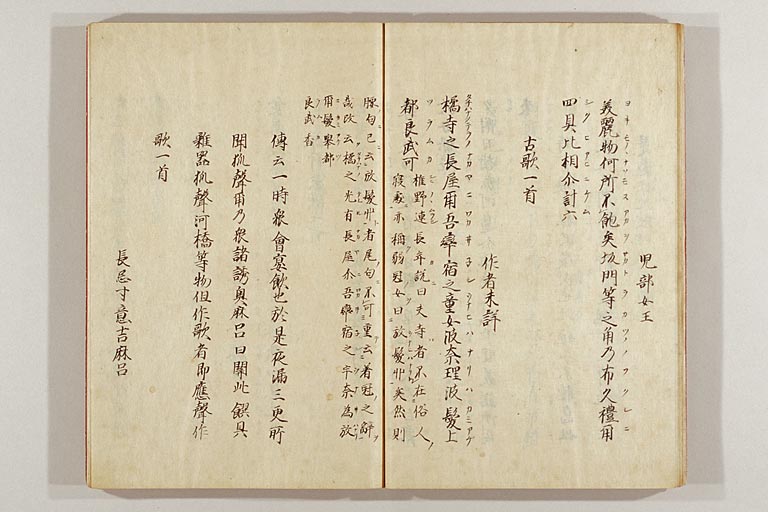 児部女王
美麗物何所不飽矣坂門等之角乃布久禮尓
四具比相尒計六
古歌一首
作者未詳
橘寺之長屋尓吾率宿之童女波奈理波髪上
都良武可
椎野連長年説曰夫寺者不在俗人
寝處亦稱弱冠女曰放髪丱矣然則
腰句已云放髪丱者尾句不可重云着冠之辞
哉改云橘之光有長屋尒吾率宿之宇奈為放
尓髪擧都
良武香
傳云一時衆會宴飲也於是夜漏三更所
聞狐聲尓乃衆諸誘奥麻呂曰關此饌具
雜器狐聲河橋等物但作歌者即應聲作
歌一首
長忌寸意吉麻呂